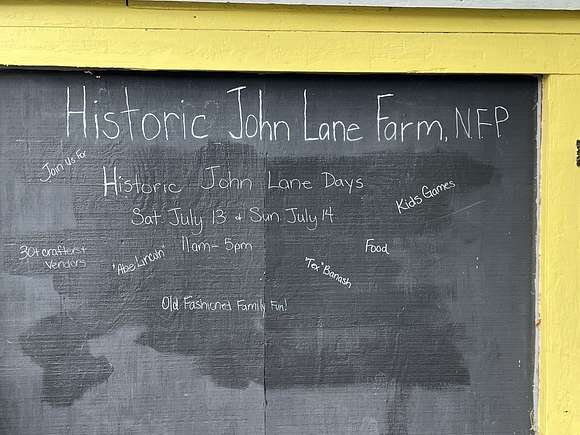 Historic John Lane Farm, NFP
Join Us For
Historic John Lane Days
Kids Games
Sat. July 13 & Sun. July 14
11am - 5pm
30+ crafters &
Vendors
"Abe Lincoln"
"Tex" Banash
Food
Old Fashioned Family Fun!